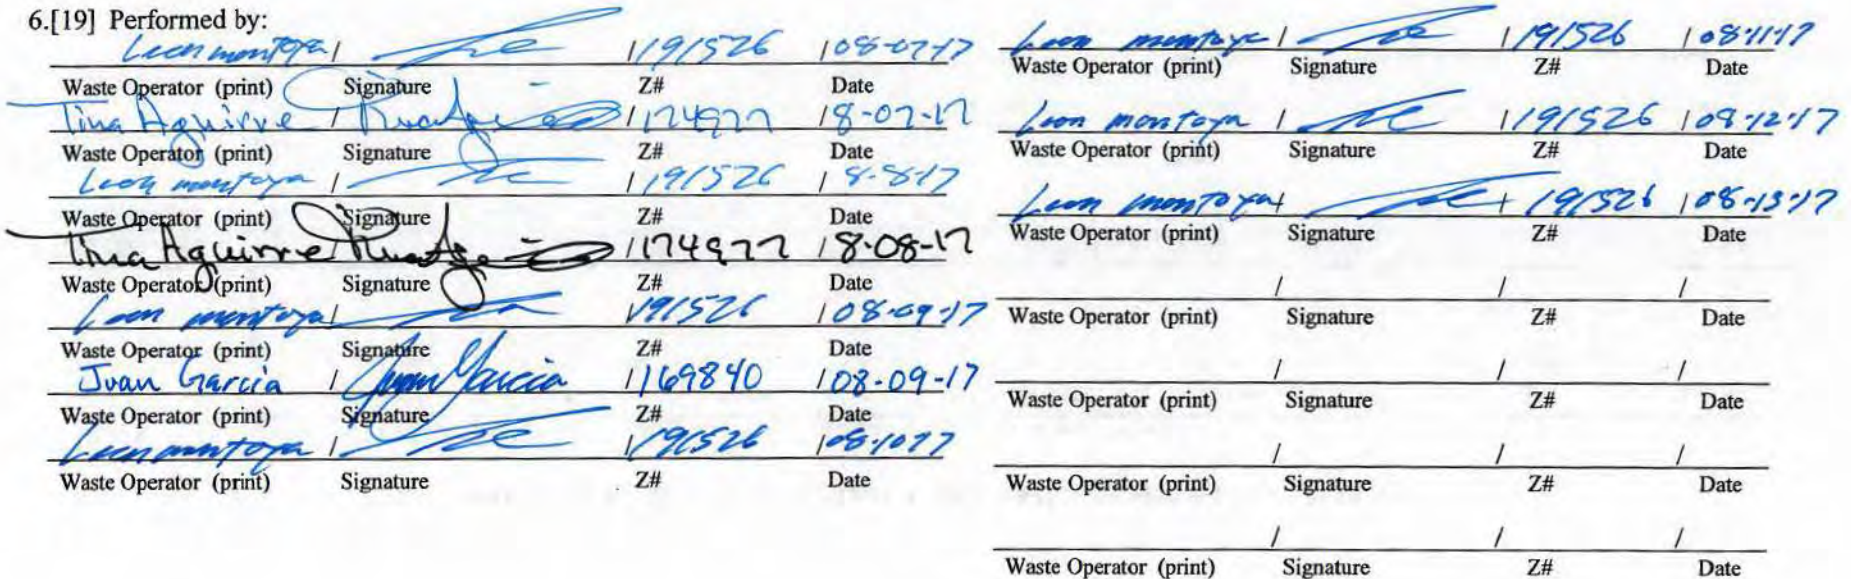 6.[19] Performed by:
Leon montoya / / 191526 / 08-07-17
Waste Operator (print) Signature Z# Date
Tina Aguirre / / 174977 / 8-07-17
Waste Operator (print) Signature Z# Date
Leon montoya / / 191526 / 8-8-17
Waste Operator (print) Signature Z# Date
Tina Aguirre / 174977 / 8-08-17
Waste Operator (print) Signature Z# Date
Leon montoya / 191526 / 08-09-17
Waste Operator (print) Signature Z# Date
Juan Garcia / Juan Garcia / 169840 / 08-09-17
Waste Operator (print) Signature Z# Date
Leon montoya / / 191526 / 08-10-17
Waste Operator (print) Signature Z# Date
Leon montoya / / 191526 / 08-11-17
Waste Operator (print) Signature Z# Date
Leon montoya / / 191526 / 08-12-17
Waste Operator (print) Signature Z# Date
Leon montoya / / 191526 / 08-13-17
Waste Operator (print) Signature Z# Date
/ / /
Waste Operator (print) Signature Z# Date
/ / /
Waste Operator (print) Signature Z# Date
/ / /
Waste Operator (print) Signature Z# Date
/ / /
Waste Operator (print) Signature Z# Date